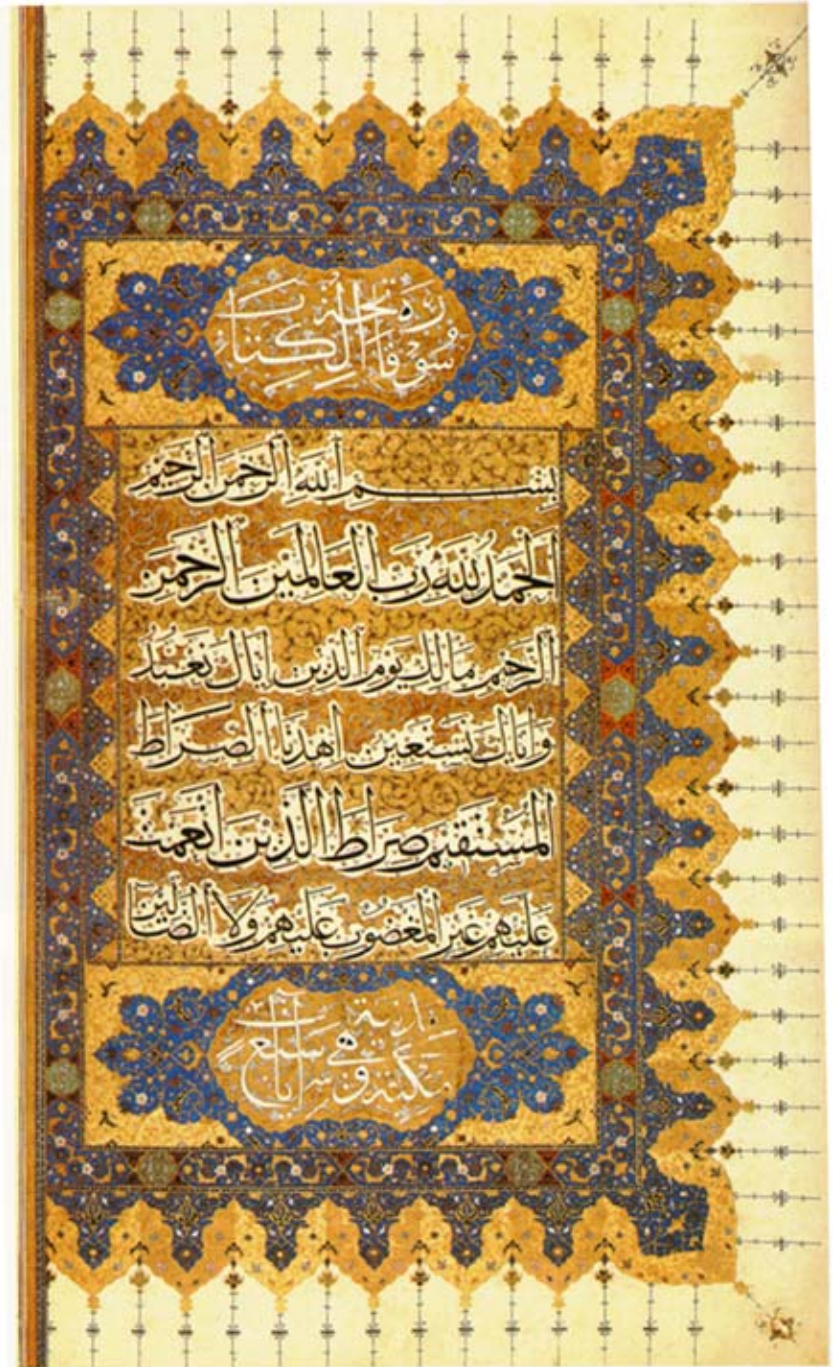 سورة فاتحة الكتاب
بسم الله الرحمن الرحيم
الحمد لله رب العالمين الرحمن
الرحيم مالك يوم الدين اياك نعبد
واياك نستعين اهدنا الصراط
المستقيم صراط الذين انعمت
عليهم غير المغضوب عليهم ولا الضالين
مكية وهي سبع آيات